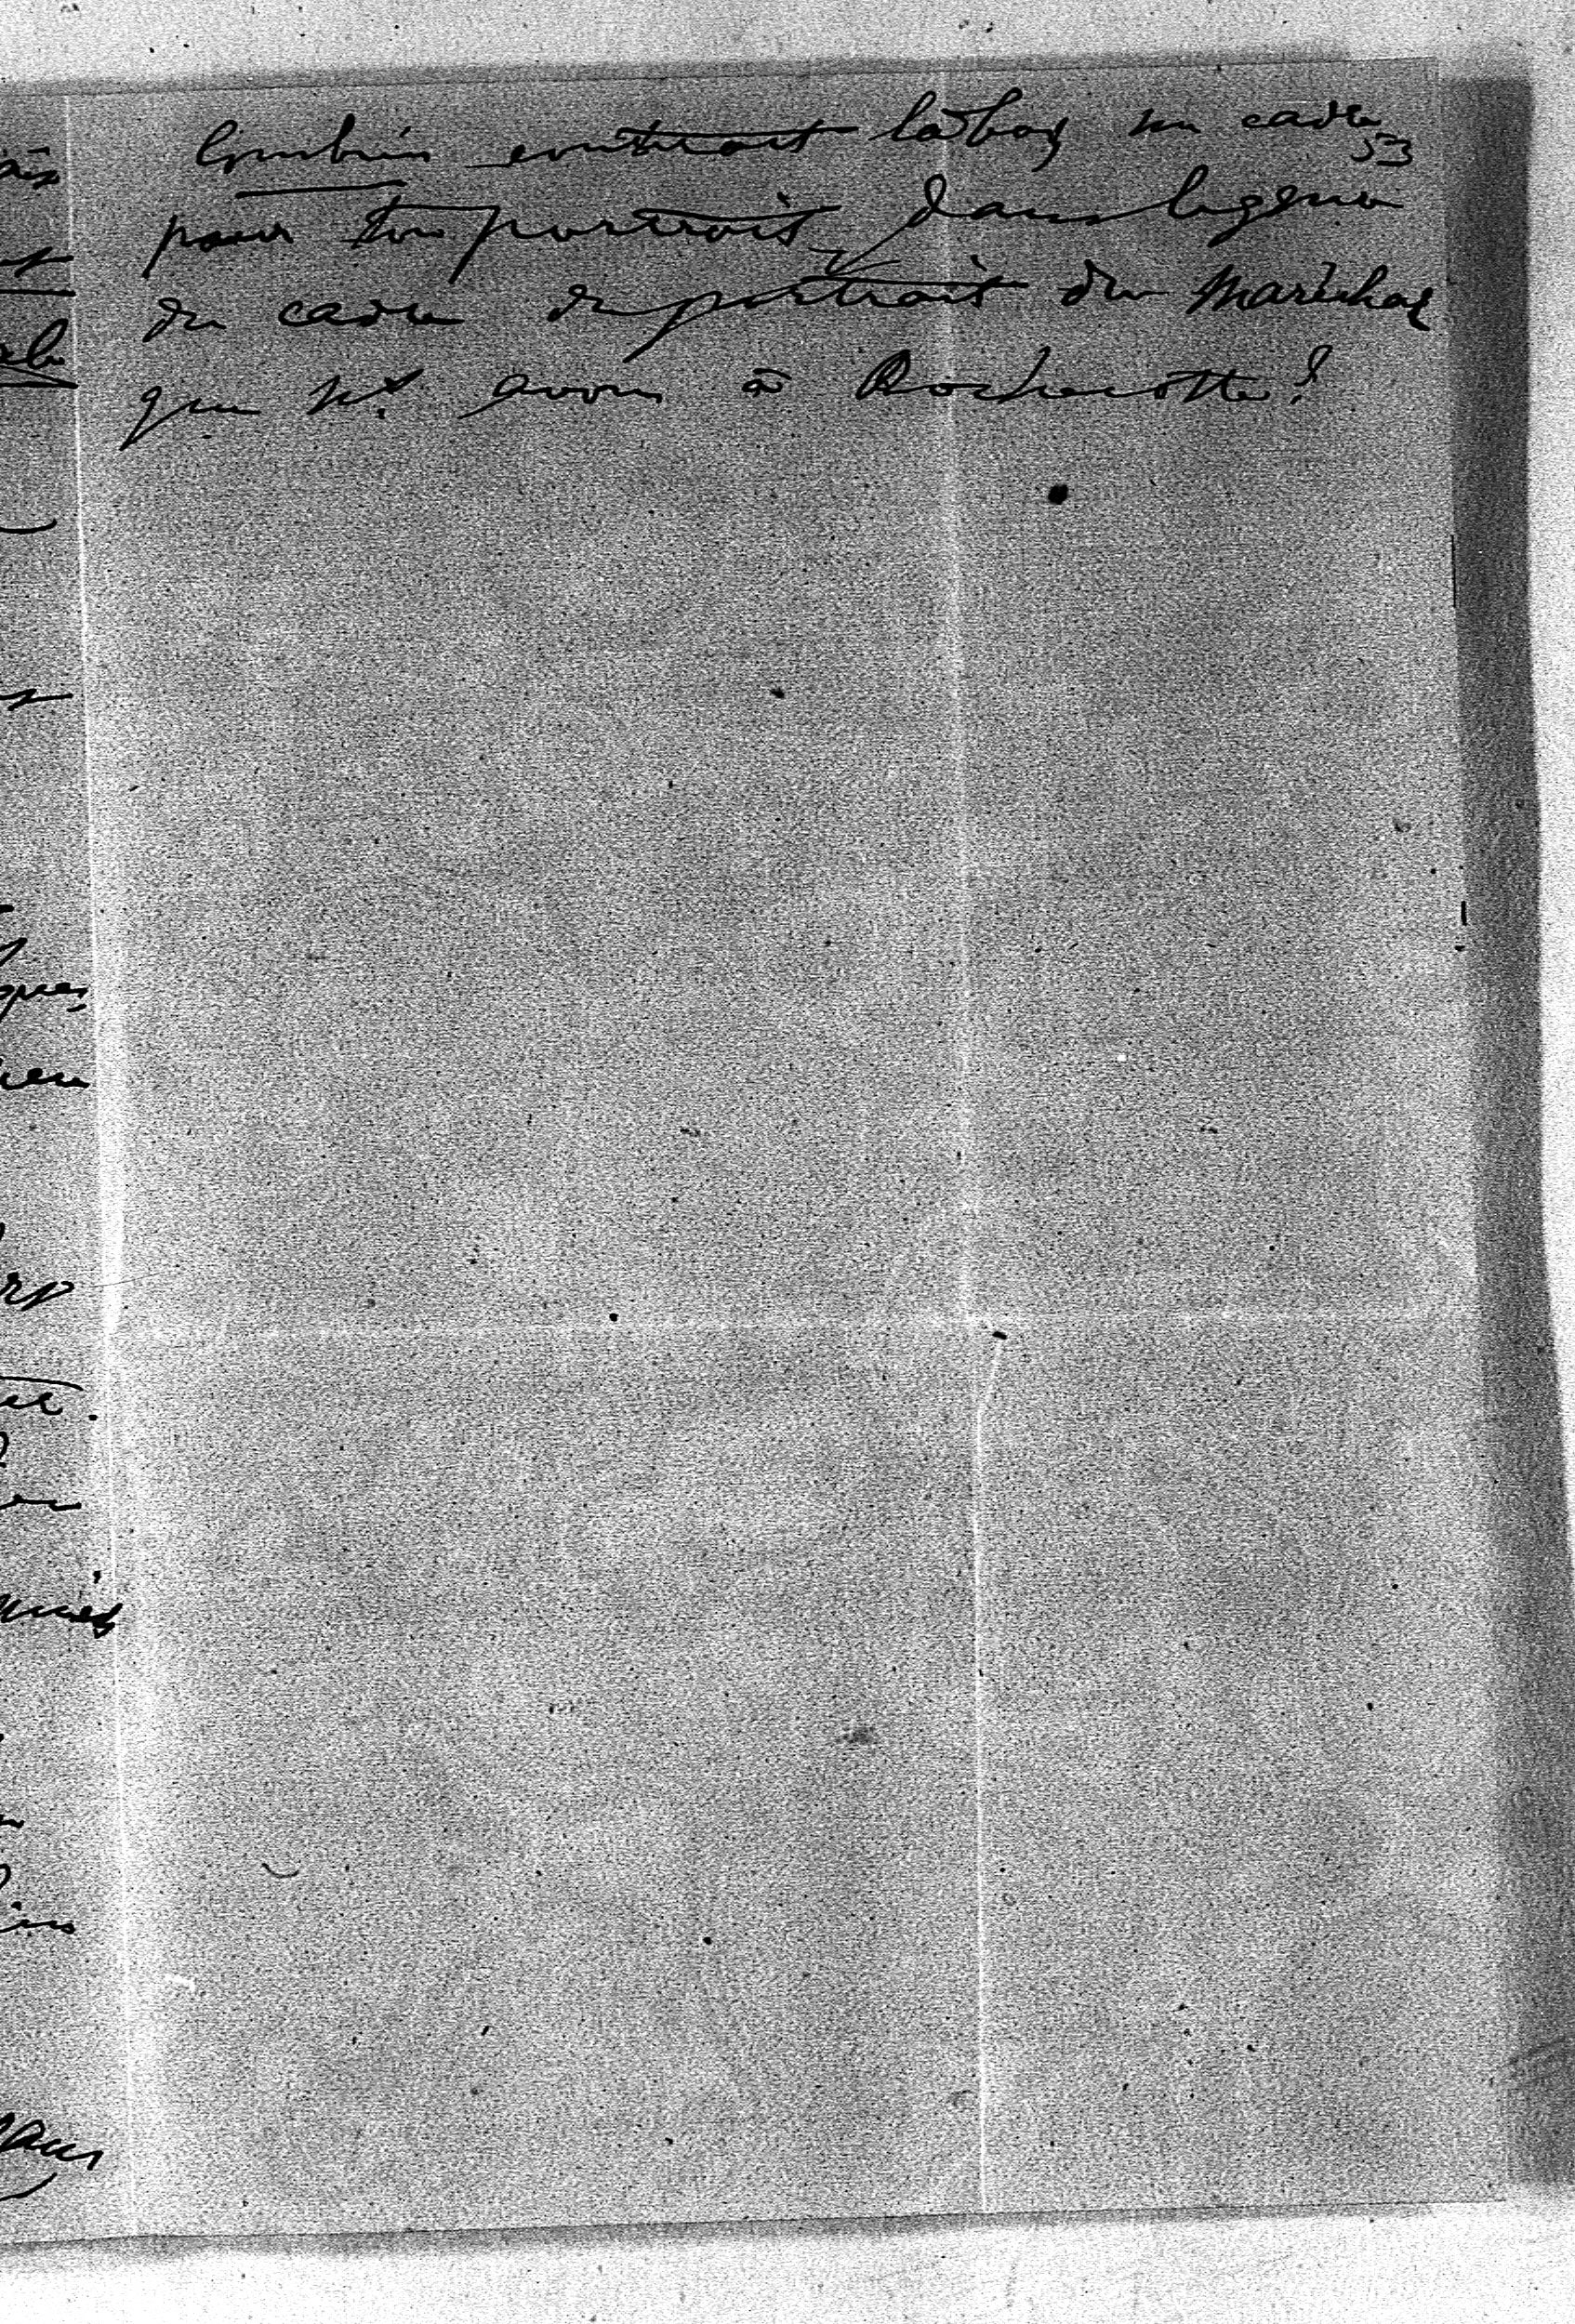 Combien coûterait là bas un cadre
53
pour ton portrait, dans le genre
du cadre du portrait du Maréchal
que ns. avons à Rochecotte?